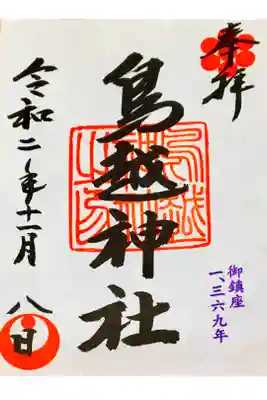 奉拝
御鎮座
一、三六九年
鳥越神社
令和二年十一月八日